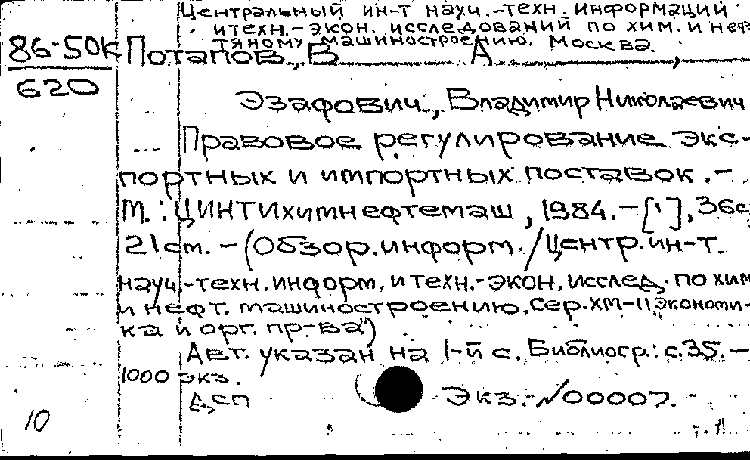 Центральный ин-т науч.-техн. информации
и техн.-экон. исследований по хим. и неф
тяному машиностроению. Москва.
86-50К Потапов, В А ,
620
Эзафович, Владимир Николаевич
Правовое регулирование экс-
портных и импортных поставок. -
М.: ЦИНТИхимнефтемаш, 1984. - [1], 36с
21 cm. - (Обзор. информ. / Центр. ин-т.
науч.-техн. информ. и техн.-экон. исслед. по хим
и нефт. машиностроению. Сер. ХМ-11, Экономи-
ка и орг. пр-ва)
Авт. указан на 1-й с. Библиогр.: с. 35. -
1000 экз.
ДСП Экз. №00007.
10